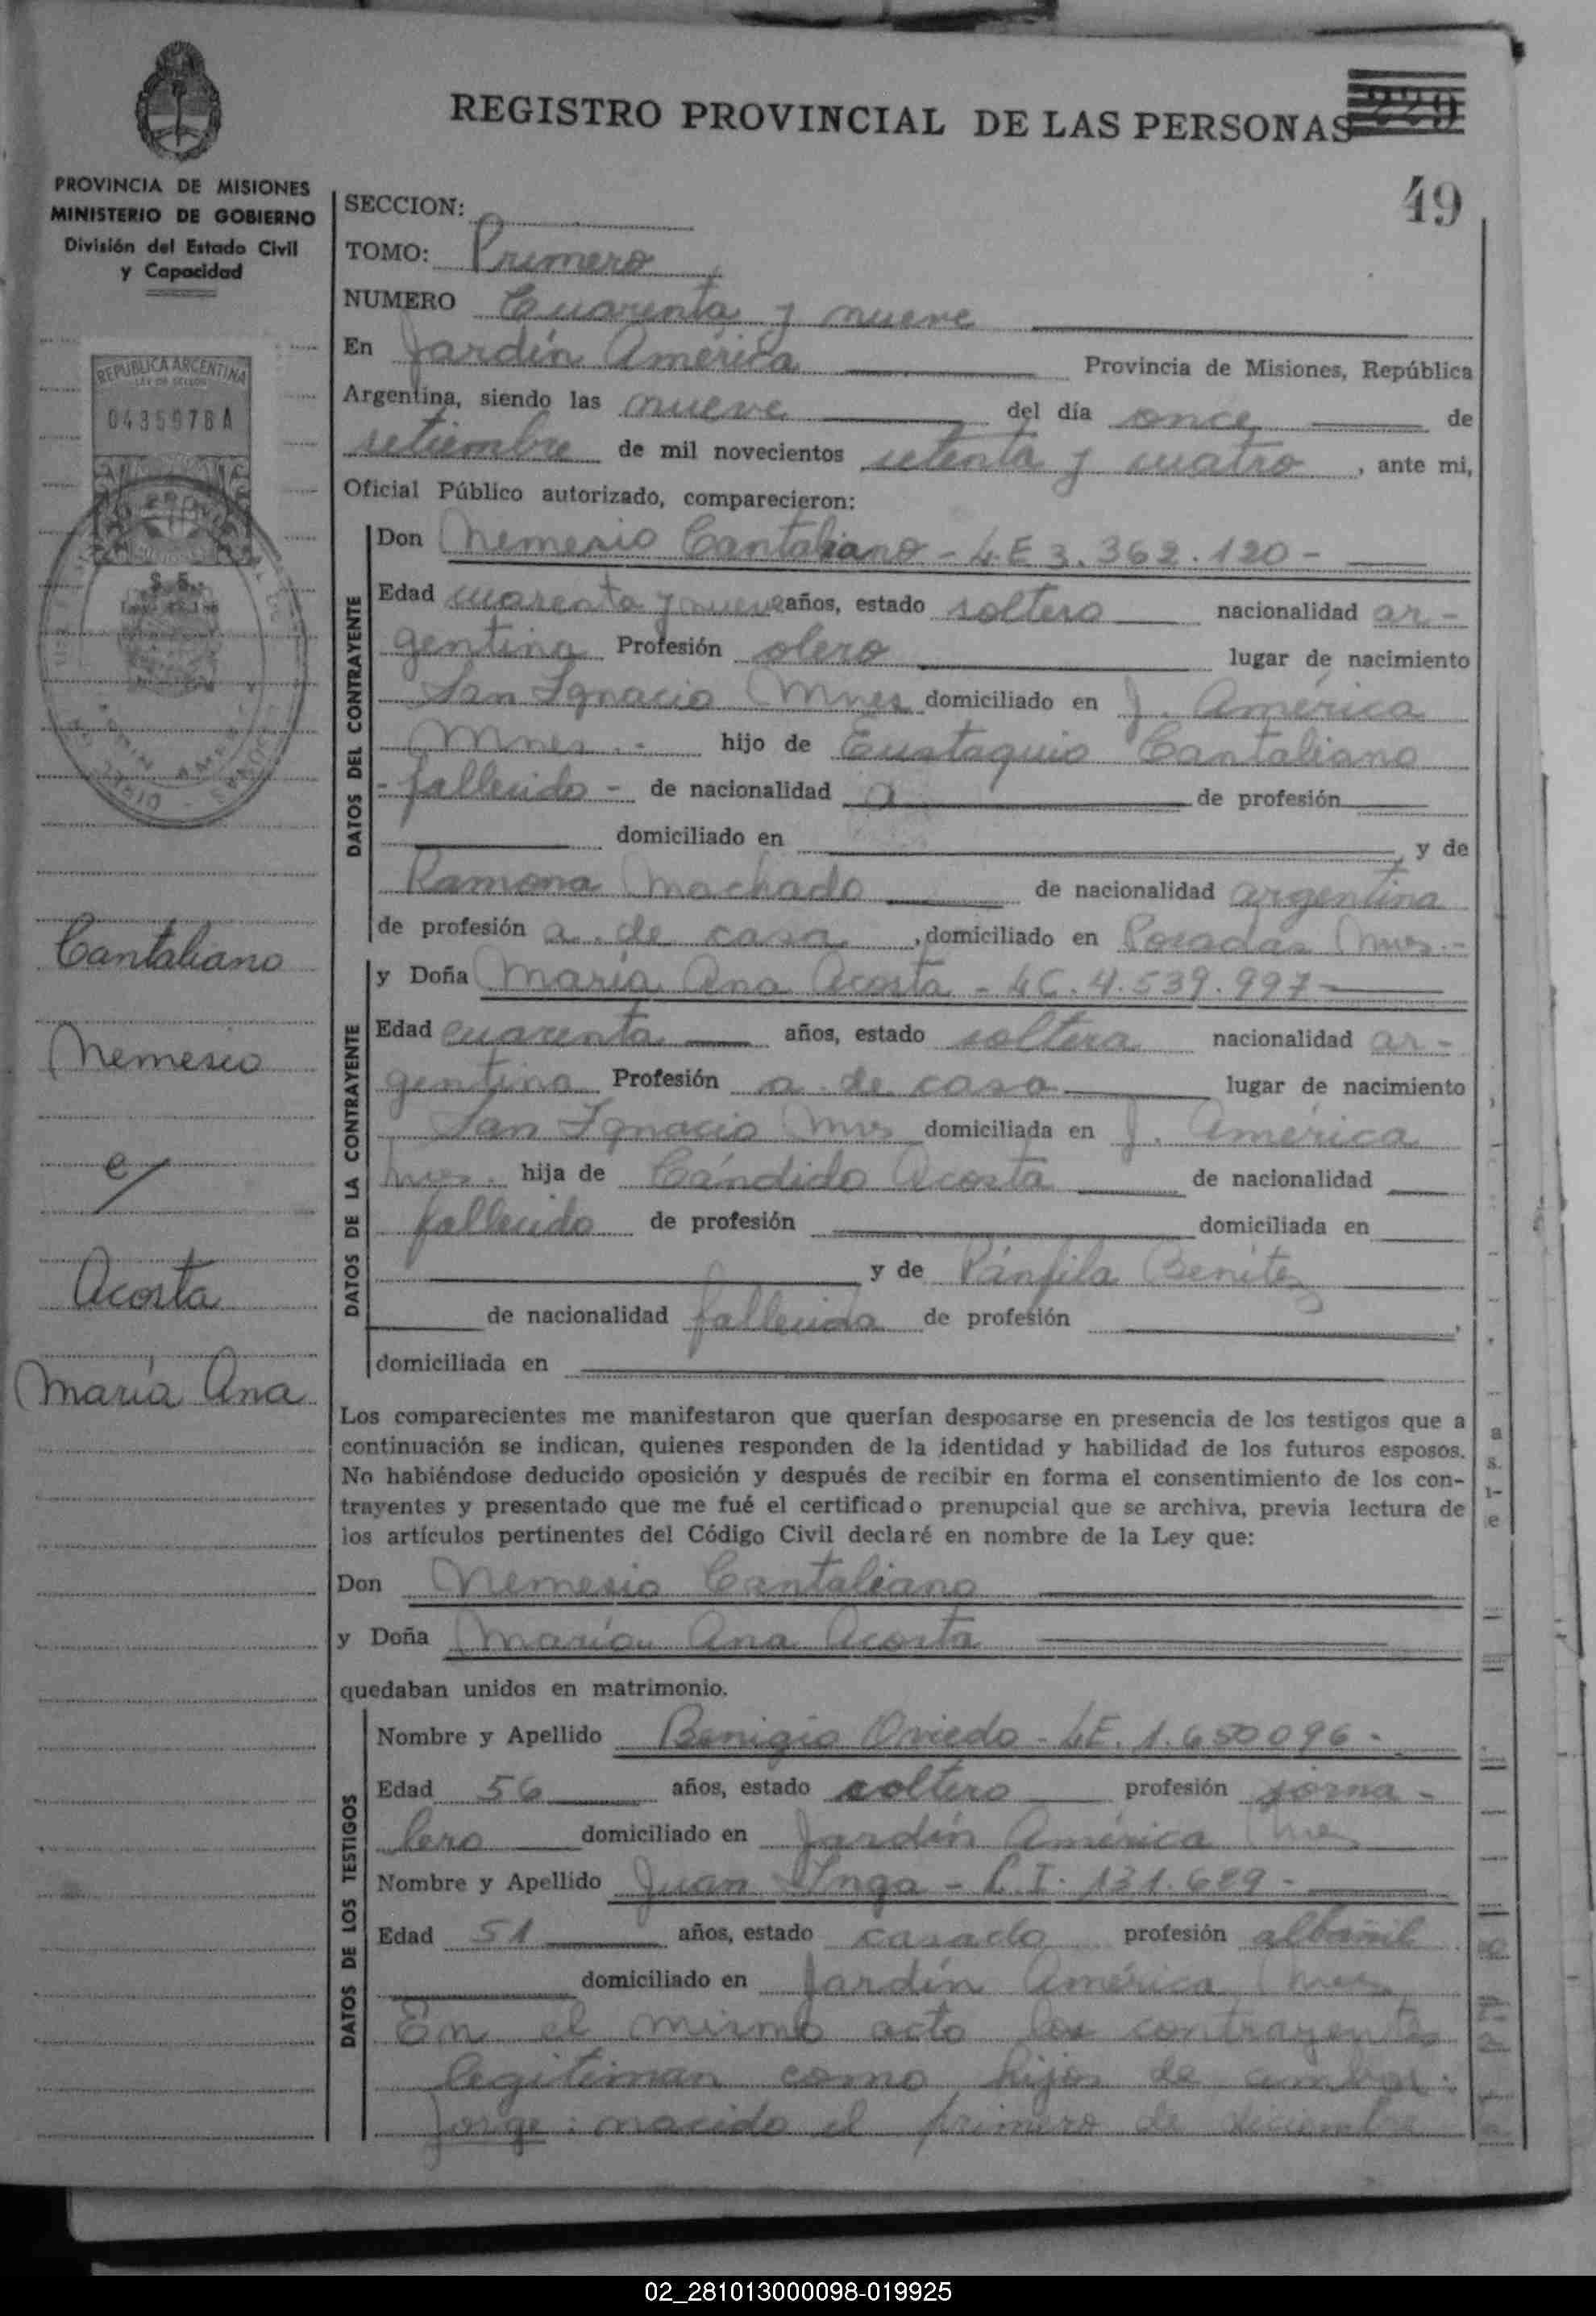 REGISTRO PROVINCIAL DE LAS PERSONAS
229
49
PROVINCIA DE MISIONES
MINISTERIO DE GOBIERNO
División del Estado Civil
y Capacidad
REPUBLICA ARGENTINA
SECCION:
TOMO: Primero
NUMERO Cuarenta y nueve
En Jardín América Provincia de Misiones, República
Argentina, siendo las nueve del día once de
setiembre de mil novecientos setenta y cuatro, ante mi,
Oficial Público autorizado, comparecieron:
DATOS DEL CONTRAYENTE
Don Nemesio Cantaliano - L.E 3.362.120 -
Edad cuarenta y nueve años, estado soltero nacionalidad ar-
gentina Profesión olero lugar de nacimiento
San Ignacio Mnes domiciliado en J. América
Mnes.- hijo de Eustaquio Cantaliano
- fallecido - de nacionalidad de profesión
domiciliado en , y de
Ramona Machado de nacionalidad argentina
de profesión a. de casa, domiciliado en Posadas Mnes.-
DATOS DE LA CONTRAYENTE
y Doña María Ana Acosta - LC. 4.539.997-
Edad cuarenta años, estado soltera nacionalidad ar-
gentina Profesión a. de casa lugar de nacimiento
San Ignacio Mns domiciliada en J. América
Mns. hija de Cándido Acosta de nacionalidad
fallecido de profesión domiciliada en
y de Pánfila Benítez
de nacionalidad fallecida de profesión ,
domiciliada en
Cantaliano
Nemesio
c/
Acosta
María Ana
Los comparecientes me manifestaron que querían desposarse en presencia de los testigos que a
continuación se indican, quienes responden de la identidad y habilidad de los futuros esposos.
No habiéndose deducido oposición y después de recibir en forma el consentimiento de los con-
trayentes y presentado que me fué el certificado prenupcial que se archiva, previa lectura de
los artículos pertinentes del Código Civil declaré en nombre de la Ley que:
Don Nemesio Cantaliano
y Doña María Ana Acosta
quedaban unidos en matrimonio.
DATOS DE LOS TESTIGOS
Nombre y Apellido Benigio Oviedo - LE. 1.650096-
Edad 56 años, estado soltero profesión jorna-
lero domiciliado en Jardín América Mnes
Nombre y Apellido Juan Inga - C.I. 131.629-
Edad 51 años, estado casado profesión albañil
domiciliado en Jardín América Mnes
En el mismo acto los contrayentes
legitiman como hijos de ambos:
Jorge: nacido el primero de diciembre
02_281013000098-019925